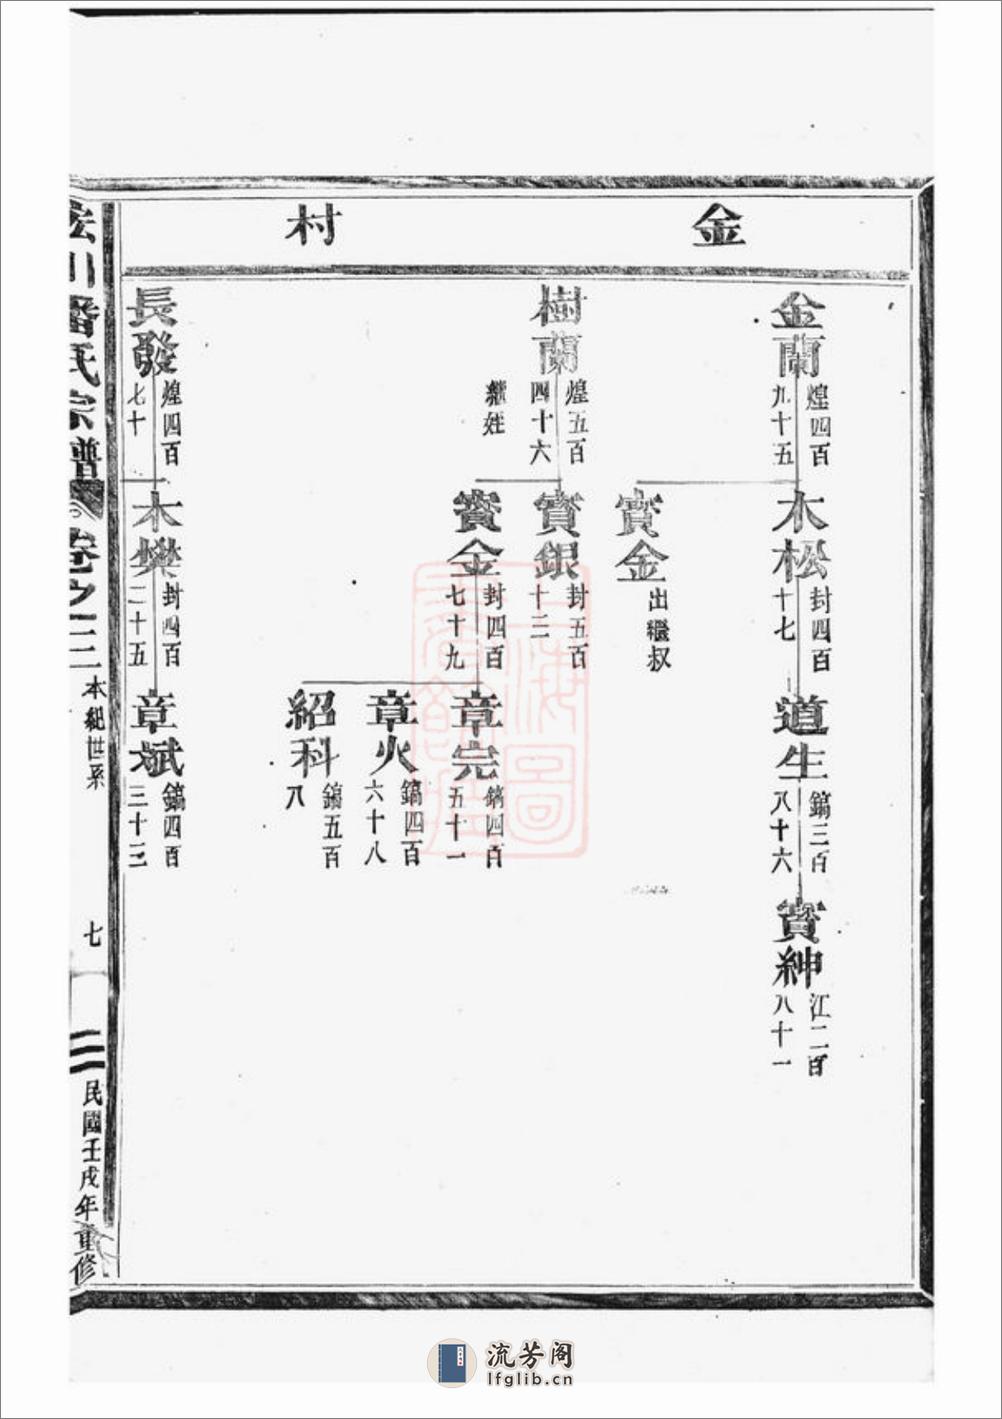 金村
金蘭
煌四百
九十五
木松
封四百
十七
道生
鎬三百
八十六
寶紳
江二百
八十一
寶金
出繼叔
樹蘭
煌五百
四十六
寶銀
封五百
十三
繼姪
寶金
封四百
七十九
章完
鎬四百
五十一
章火
鎬四百
六十八
紹科
鎬五百
八
長發
煌四百
七十
木樊
封四百
二十五
章斌
鎬四百
三十三
川潘氏宗譜
卷之三
本紀世系
七
民國壬戌年重修
上海圖
流芳阁
lfglib.cn